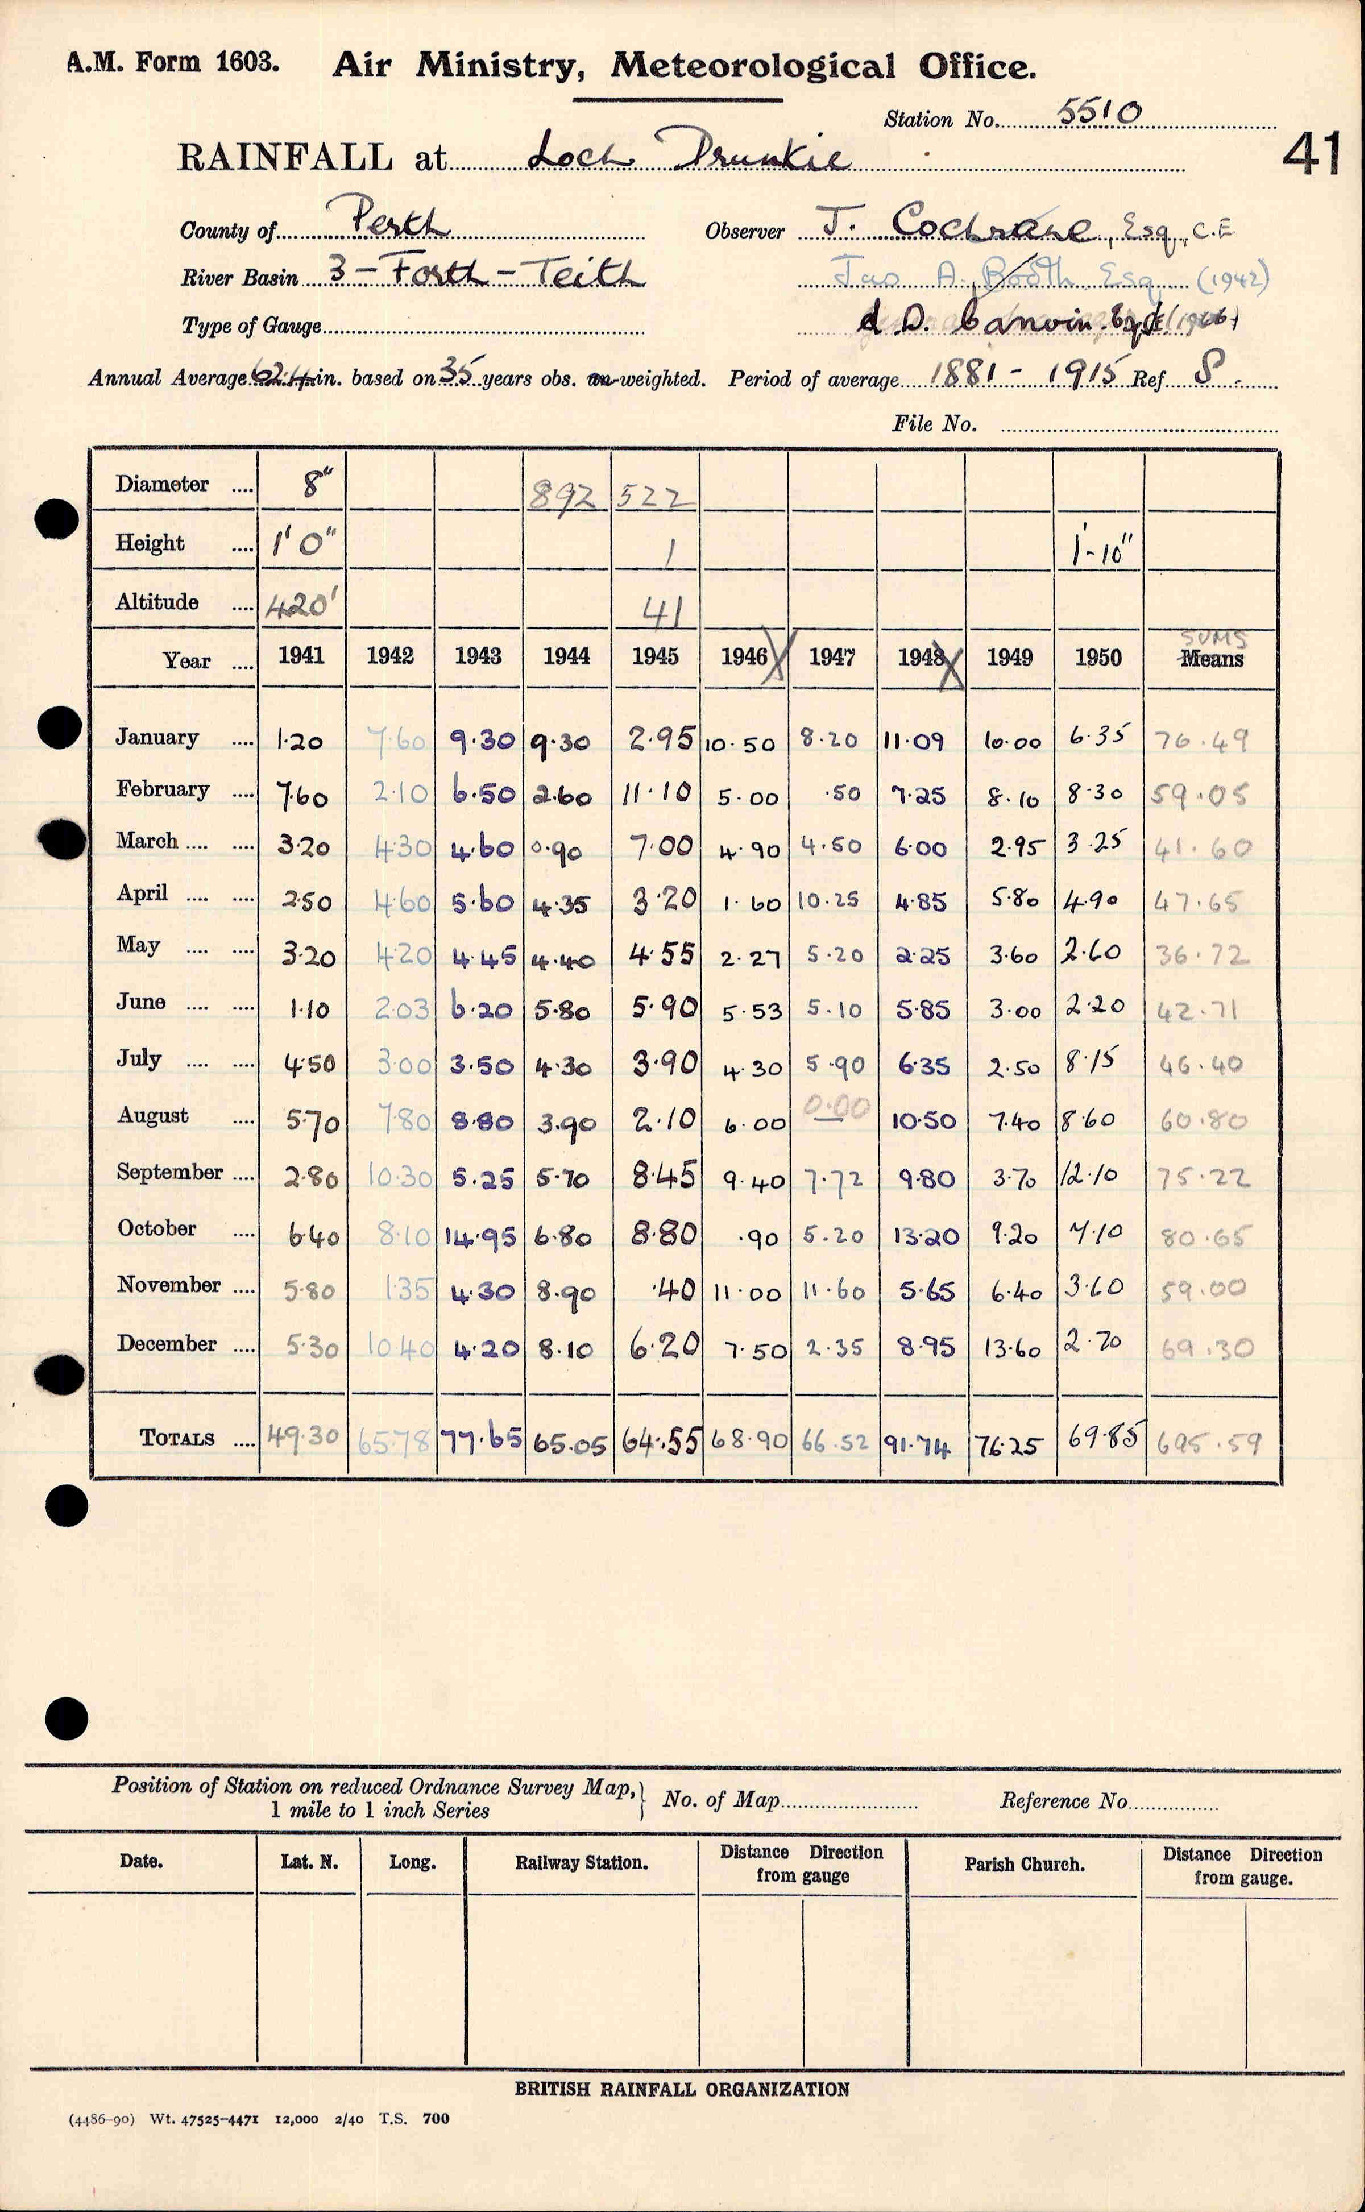 A.M. Form 1603. Air Ministry, Meteorological Office.
Station No. 5510
41
RAINFALL at Loch Drunkie
County of Perth Observer J. Cochrane, Esq., C.E
River Basin 3 - Forth - Teith Jas A. Booth Esq. (1942)
Type of Gauge
Annual Average 62.4 in. based on 35 years obs. un-weighted. Period of average 1881 - 1915 Ref S.
File No.
Diameter 8" 892 522
Height 1' 0" 1 1'-10"
Altitude 420' 41
SUMS
Year 1941 1942 1943 1944 1945 1946 X 1947 1948 X 1949 1950 Means
January 1.20 7.60 9.30 9.30 2.95 10.50 8.20 11.09 10.00 6.35 76.49
February 7.60 2.10 6.50 2.60 11.10 5.00 .50 7.25 8.10 8.30 59.05
March 3.20 4.30 4.60 0.90 7.00 4.90 4.50 6.00 2.95 3.25 41.60
April 2.50 4.60 5.60 4.35 3.20 1.60 10.25 4.85 5.80 4.90 47.65
May 3.20 4.20 4.45 4.40 4.55 2.27 5.20 2.25 3.60 2.60 36.72
June 1.10 2.03 6.20 5.80 5.90 5.53 5.10 5.85 3.00 2.20 42.71
July 4.50 3.00 3.50 4.30 3.90 4.30 5.90 6.35 2.50 8.15 46.40
August 5.70 7.80 8.80 3.90 2.10 6.00 0.00 — 10.50 7.40 8.60 60.80
September 2.80 10.30 5.25 5.70 8.45 9.40 7.72 9.80 3.70 12.10 75.22
October 6.40 8.10 14.95 6.80 8.80 .90 5.20 13.20 9.20 7.10 80.65
November 5.80 1.35 4.30 8.90 .40 11.00 11.60 5.65 6.40 3.60 59.00
December 5.30 10.40 4.20 8.10 6.20 7.50 2.35 8.95 13.60 2.70 69.30
TOTALS 49.30 65.78 77.65 65.05 64.55 68.90 66.52 91.74 76.25 69.85 695.59
Position of Station on reduced Ordnance Survey Map, No. of Map Reference No.
1 mile to 1 inch Series
Date. Lat. N. Long. Railway Station. Distance Direction from gauge Parish Church. Distance Direction from gauge.
BRITISH RAINFALL ORGANIZATION
(4486-90) Wt. 47525-4471 12,000 2/40 T.S. 700